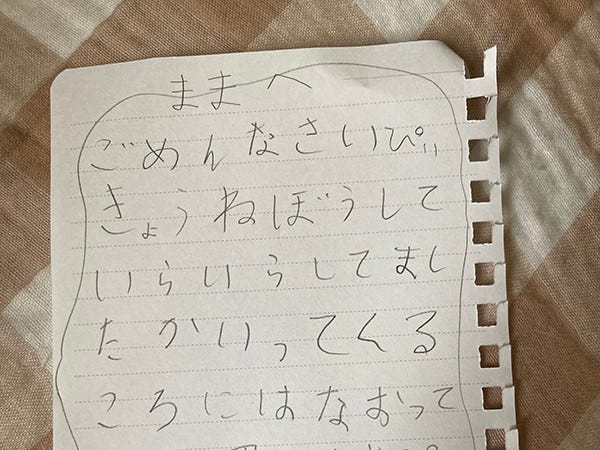 ままへ
ごめんなさいぴ!!
きょうねぼうして
いらいらしてまし
たかいってくる
ころにはなおって